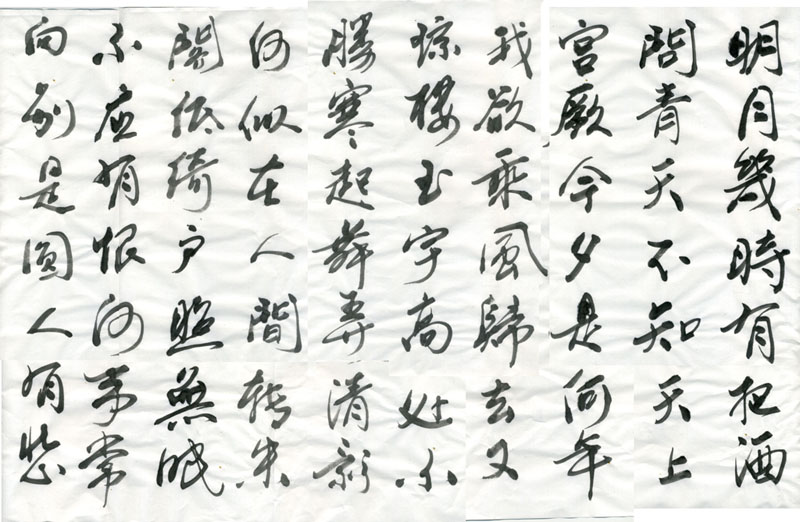 明月幾時有把酒
問青天不知天上
宫厥今夕是何年
我欲乘風歸去又
琼樓玉宇高处不
勝寒起舞弄清影
何似在人間轉朱
閣低綺户照無眠
不应有恨何事常
向别是圓人有悲